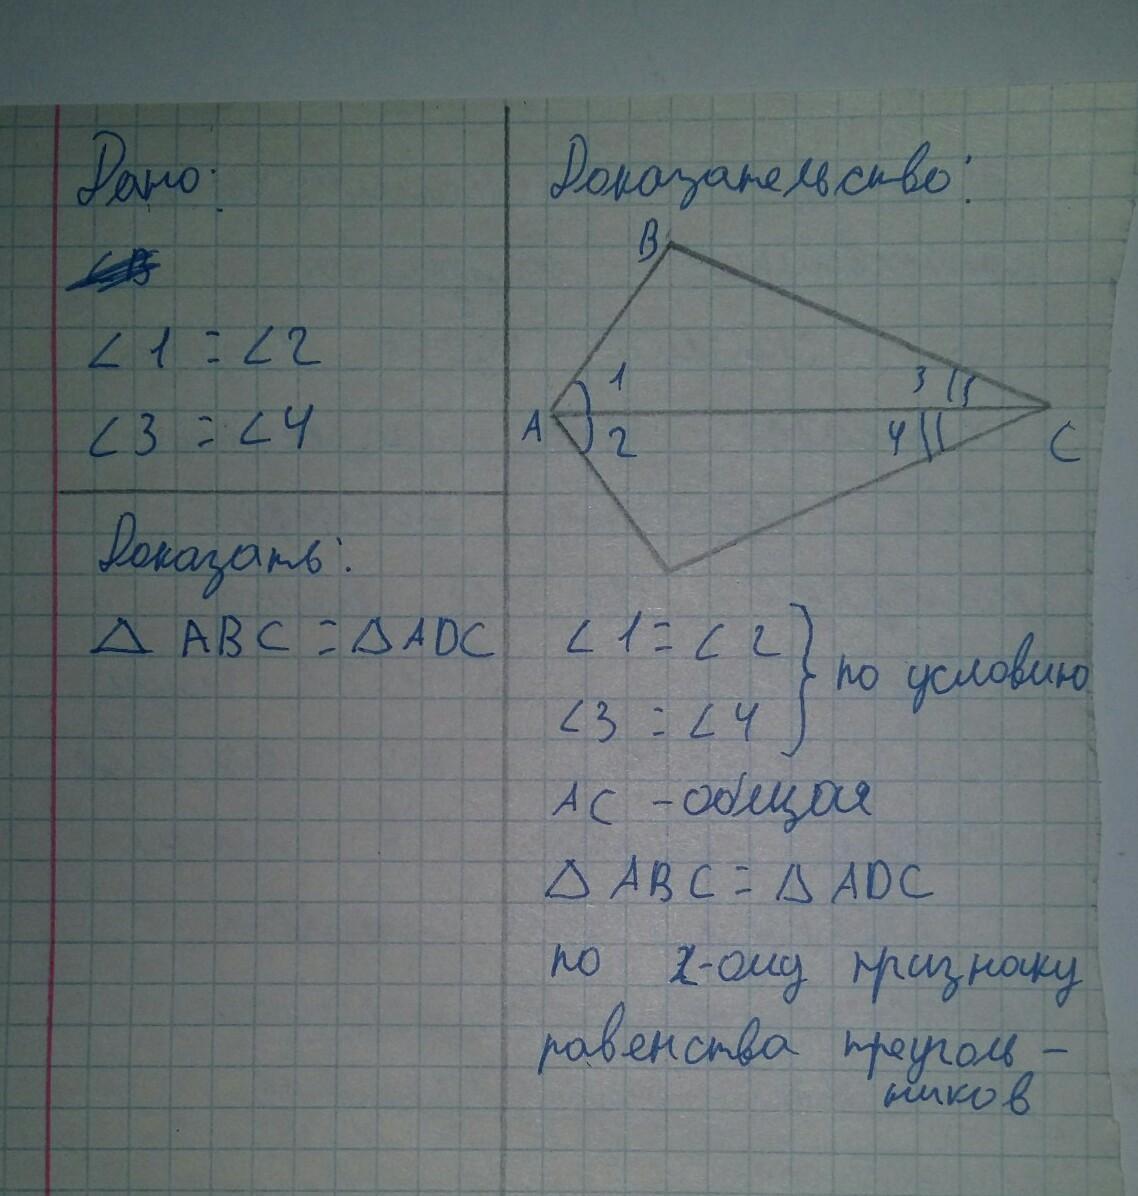 Дано:
∠1 = ∠2
∠3 = ∠4
Доказать:
△ ABC = △ ADC
Доказательство:
B
1
3
A
2
4
C
∠1 = ∠2
∠3 = ∠4
} по условию
AC - общая
△ ABC = △ ADC
по 2-ому признаку
равенства треуголь -
ников